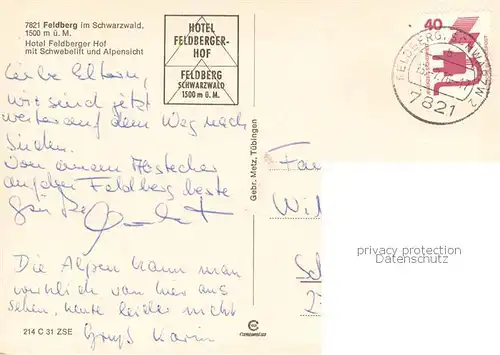 7821 Feldberg im Schwarzwald,
1500 m ü. M.
Hotel Feldberger Hof
mit Schwebelift und Alpensicht
HOTEL
FELDBERGER-
HOF
FELDBERG
SCHWARZWALD
1500 m ü. M.
40
FELDBERG, SCHWARZW 2
7821
Liebe Eltern,
wir sind jetzt
weiter auf dem Weg nach
Süden.
Von einem Abstecher
auf den Feldberg beste
Grüße
Die Alpen kann man
wirklich von hier aus
sehen, heute leider nicht
Gruß Karin
214 C 31 ZSE
Gebr. Metz, Tübingen
Fam
Wil
privacy protection
DatenschutzBalken